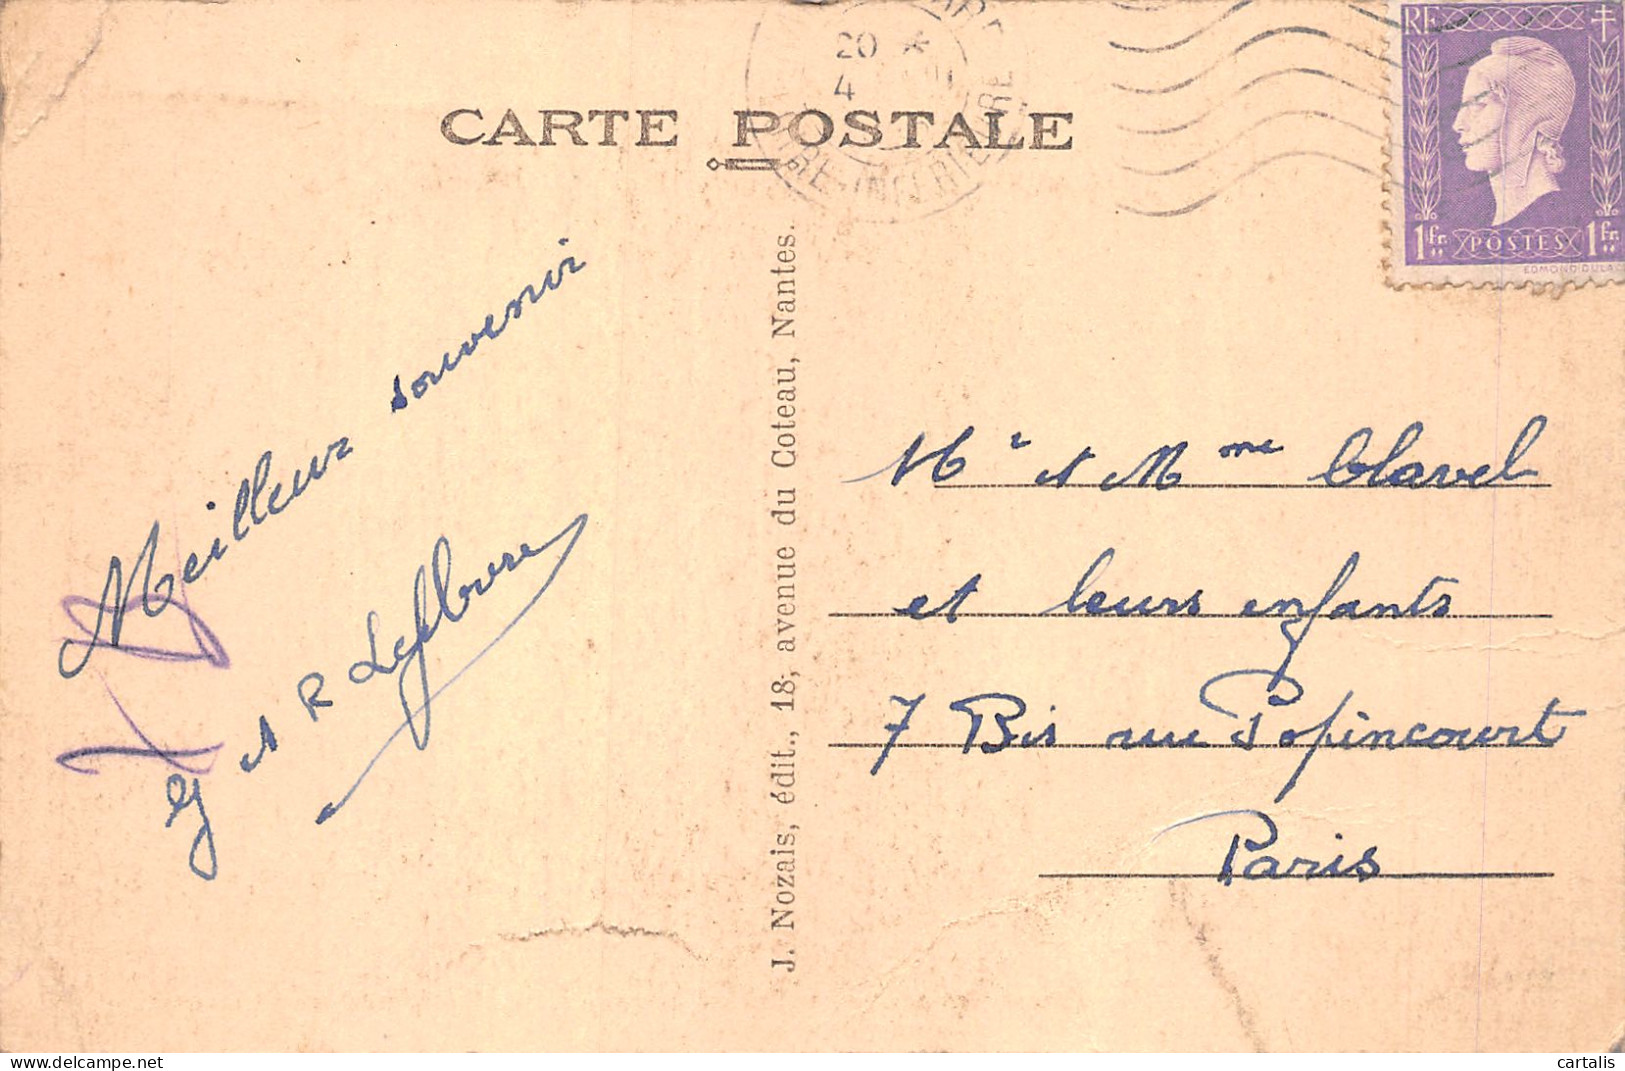 CARTE POSTALE
20 *
4
RE
1 fr. POSTES 1 fr.
EDMOND DULAC
Meilleur souvenir
G et R Lefebvre
J. Nozais, édit., 18, avenue du Coteau, Nantes.
Mr et Mme Clavel
et leurs enfants
7 Bis rue Popincourt
Paris
delcampe.net
cartalis